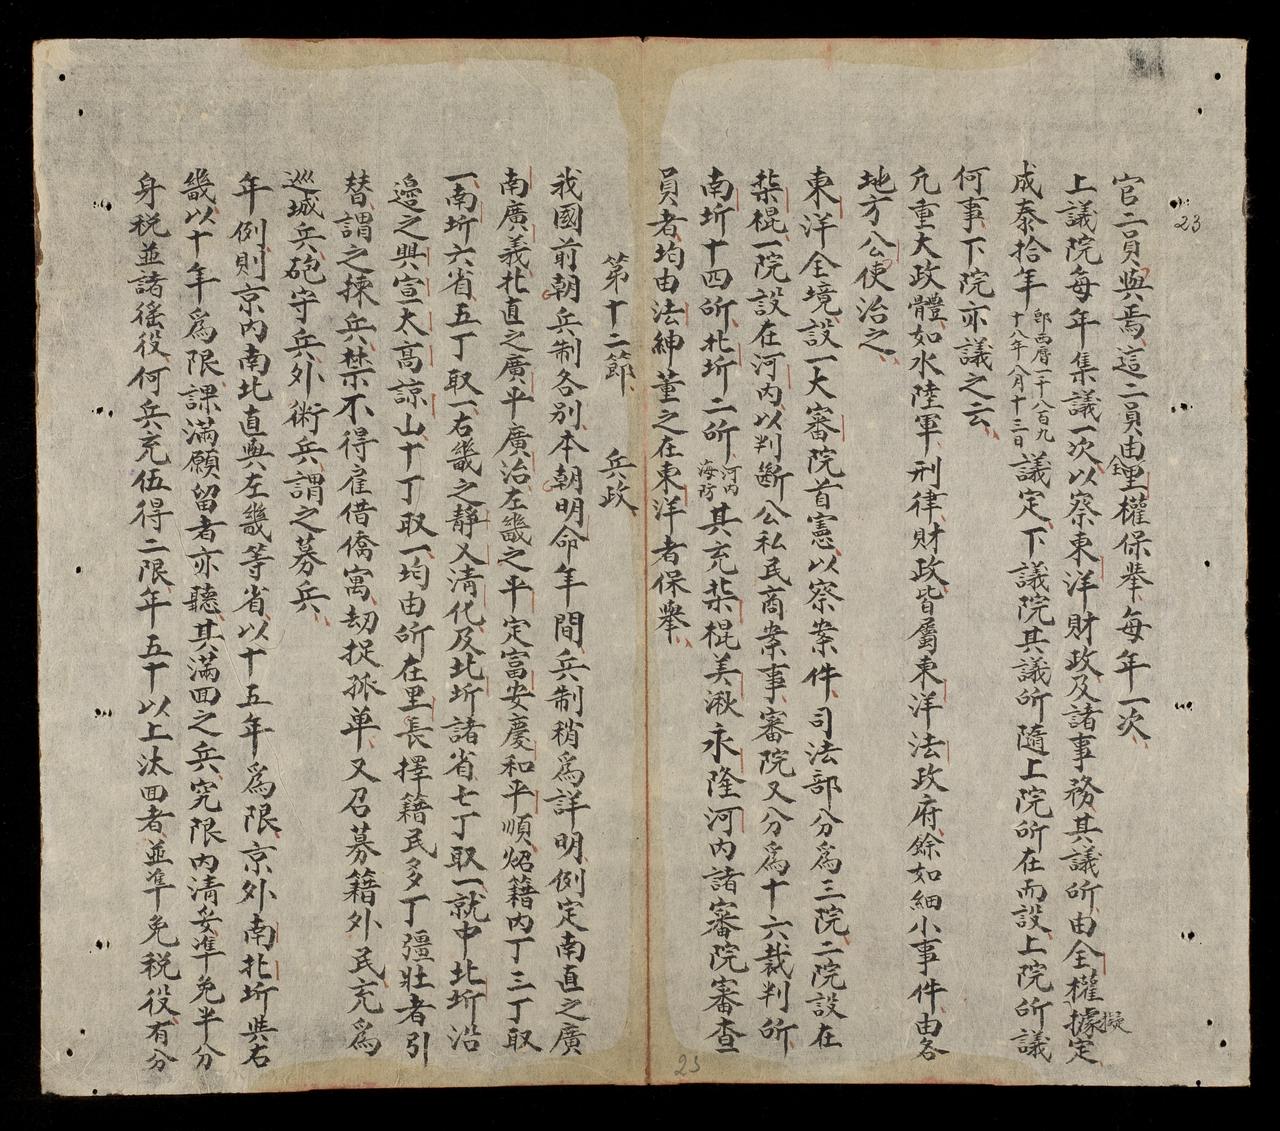 23
官二員與焉這二員由全里權保舉每年一次
上議院每年集議一次以察東洋財政及諸事務其議所由全權據擬定
成泰拾年即西曆一千八百九十八年八月十三日議定下議院其議所隨上院所在而設上院所議
何事下院亦議之云
凡重大政體如水陸軍刑律財政皆屬東洋法政府餘如細小事件由各
地方公使治之
東洋全境設一大審院首憲以察案件司法部分爲三院二院設在
柴棍一院設在河內以判斷公私民商案事審院又分爲十六裁判所
南圻十四所北圻二所河內海防其充柴棍美湫永隆河內諸審院審查
員者均由法紳董之在東洋者保舉
第十二節 兵政
我國前朝兵制各別本朝明命年間兵制稍爲詳明例定南直之廣
南廣義北直之廣平廣治左畿之平定富安慶和平順炤籍內丁三丁取
一南圻六省五丁取一右畿之靜乂清化及北圻諸省七丁取一就中北圻沿
邊之興宣太高諒山十丁取一均由所在里長擇籍民多丁彊壯者引
替謂之揀兵禁不得雇借僑寓刧捉孤单又召募籍外民充爲
巡城兵砲守兵外術兵謂之募兵
年例則京內南北直與左畿等省以十五年爲限京外南北圻與右
畿以十年爲限課滿願留者亦聽其滿回之兵究限內清妥準免半分
身税並諸徭役何兵充伍得二限年五十以上汰回者並準免税役有分
23